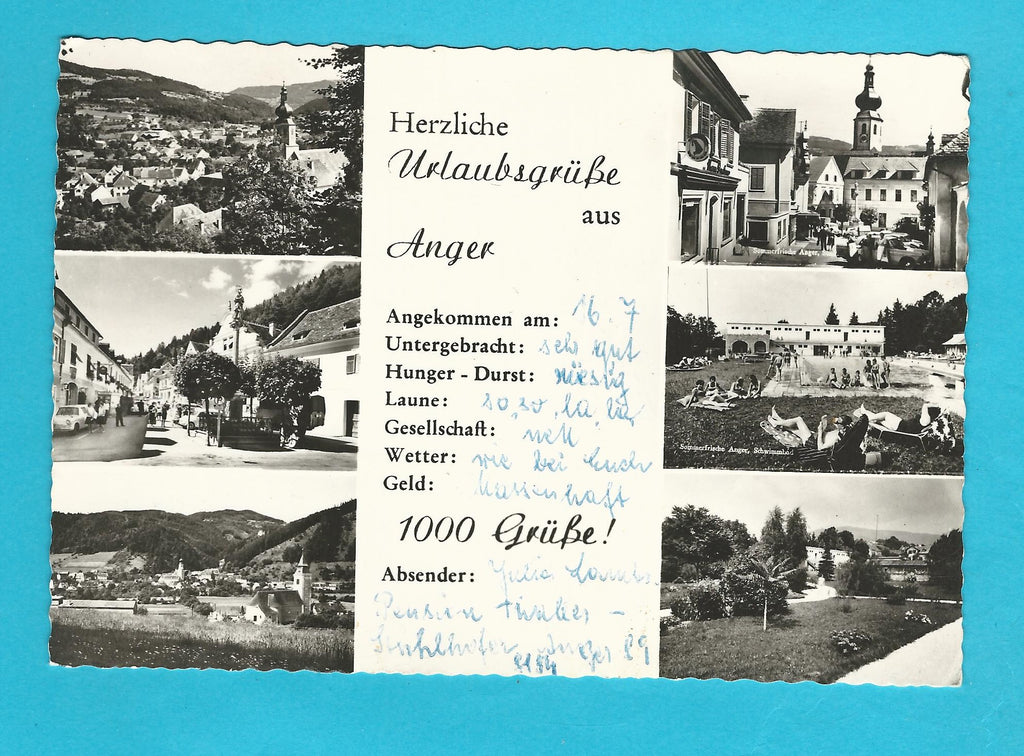 Herzliche
Urlaubsgrüße
aus
Anger
Angekommen am: 16. 7
Untergebracht: sehr gut
Hunger - Durst: riesig
Laune: so, so, la, la
Gesellschaft: nett
Wetter: wie bei Euch
Geld: massenhaft
1000 Grüße!
Absender: Julia
Pension
Anger 29
8184
Sommerfrische Anger,
Sommerfrische Anger, Schwimmbad